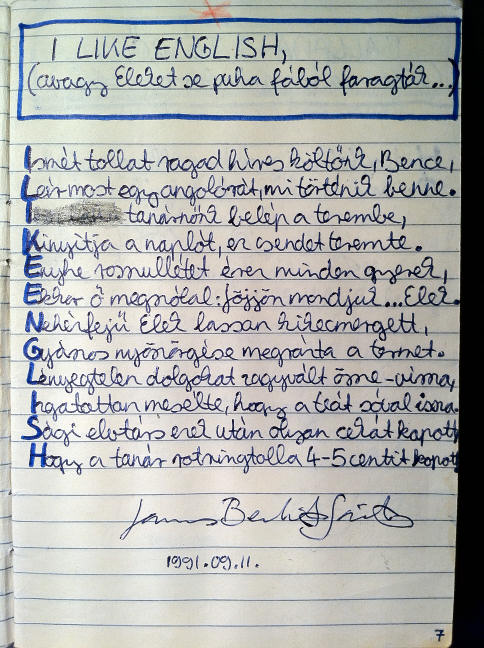 I LIKE ENGLISH,
(avagy Eleket se puha fából faragták...)
Ismét tollat ragad híres költőnk, Bence,
Leír most egy angolórát, mi történik benne.
I tanárnőnk belép a terembe,
Kinyitja a naplót, ez csendet teremte.
Enyhe rosszullétet érez minden gyerek,
Ekkor ő megszólal: jöjjön mondjuk...Elek.
Nehézfejű Elek lassan kikecmergett,
Gyászos nyöszörgése megránta a termet.
Lényegtelen dolgokat zagyvált össze-vissza,
Ingatottan mesélte, hogy a teát sóval issza.
Sági elvtárs ezek után olyan cekát kapott,
Hogy a tanár rotringtolla 4-5 centit kopott
1991.09.11.
7